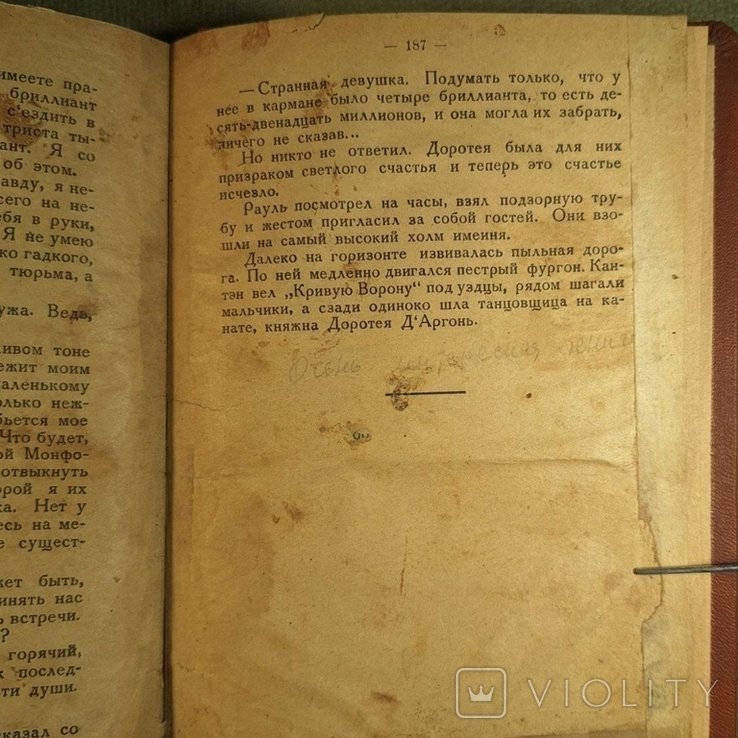 имеете пра-
бриллиант
с'ездить в
триста ты-
ант. Я со
об этом.
авду, я не-
сего на не-
ебя в руки,
Я не умею
ко гадкого,
тюрьма, а
ужа. Ведь,
ливом тоне
ежит моим
маленькому
олько неж-
бьется мое
Что будет,
ой Монфо-
отвыкнуть
орой я их
ка. Нет у
есь на ме-
е сущест-
жет быть,
инять нас
ь встречи.
?
горячий,
х послед-
ти души.
казал со
— 187 —
— Странная девушка. Подумать только, что у
нее в кармане было четыре бриллианта, то есть де-
сять-двенадцать миллионов, и она могла их забрать,
ничего не сказав...
Но никто не ответил. Доротея была для них
призраком светлого счастья и теперь это счастье
исчезло.
Рауль посмотрел на часы, взял подзорную тру-
бу и жестом пригласил за собой гостей. Они взо-
шли на самый высокий холм имения.
Далеко на горизонте извивалась пыльная доро-
га. По ней медленно двигался пестрый фургон. Кан-
тэн вел „Кривую Ворону" под уздцы, рядом шагали
мальчики, а сзади одиноко шла танцовщица на ка-
нате, княжна Доротея Д'Аргонь.
Очень интересная книга
VIOLITY